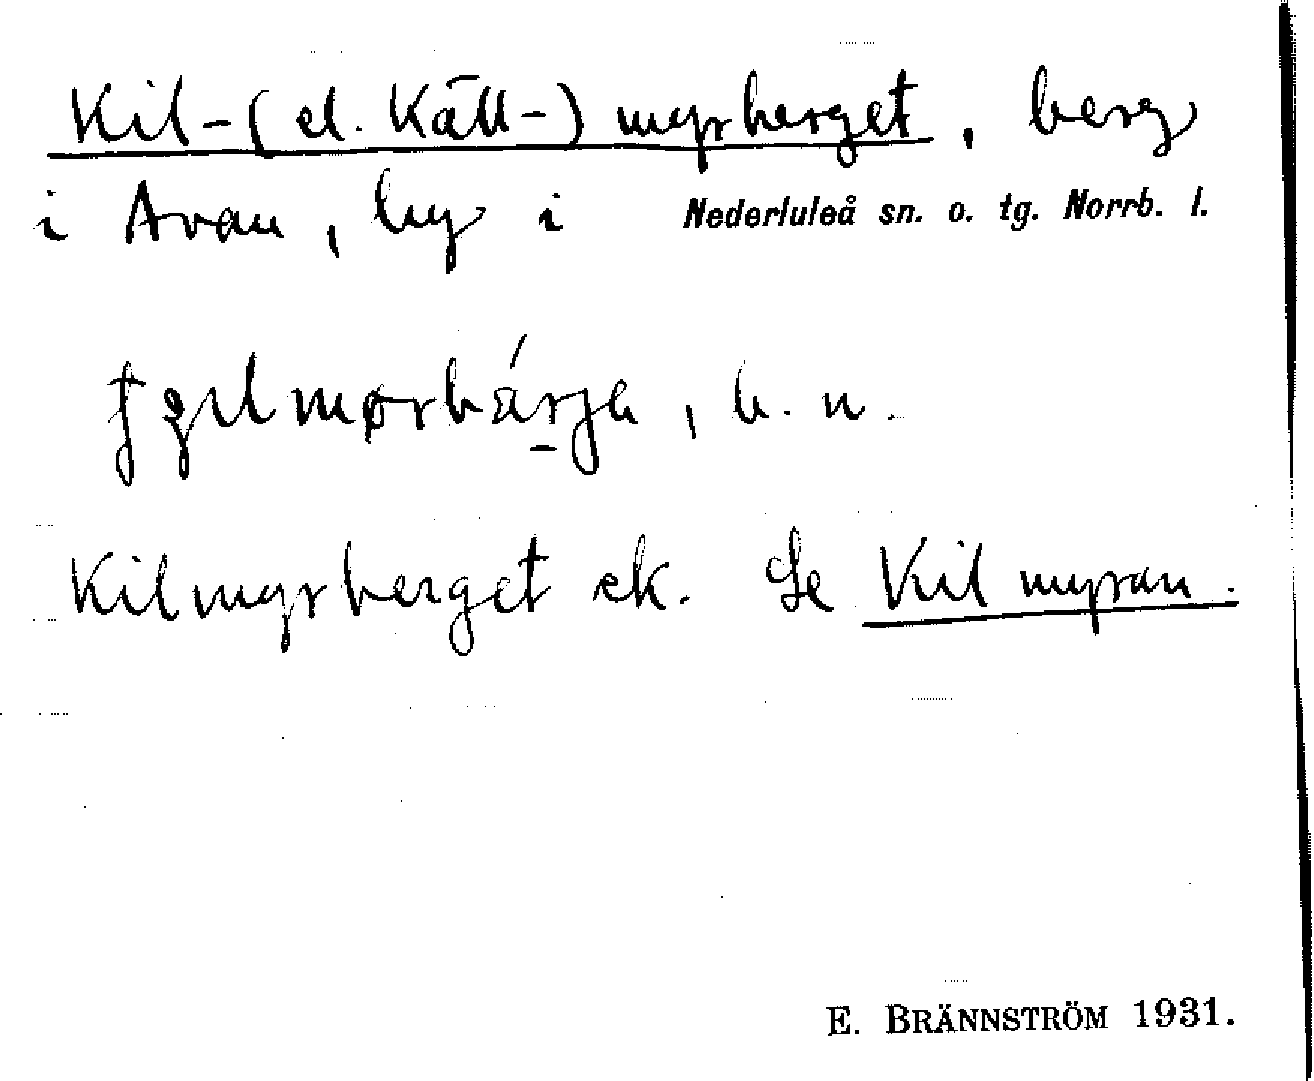 Kil-(el. Käll-) myrberget, berg
i Avan, by i Nederluleå sn. o. tg. Norrb. l.
b. n.
Kilmyrberget ek. Se Kilmyran.
E. BRÄNNSTRÖM 1931.